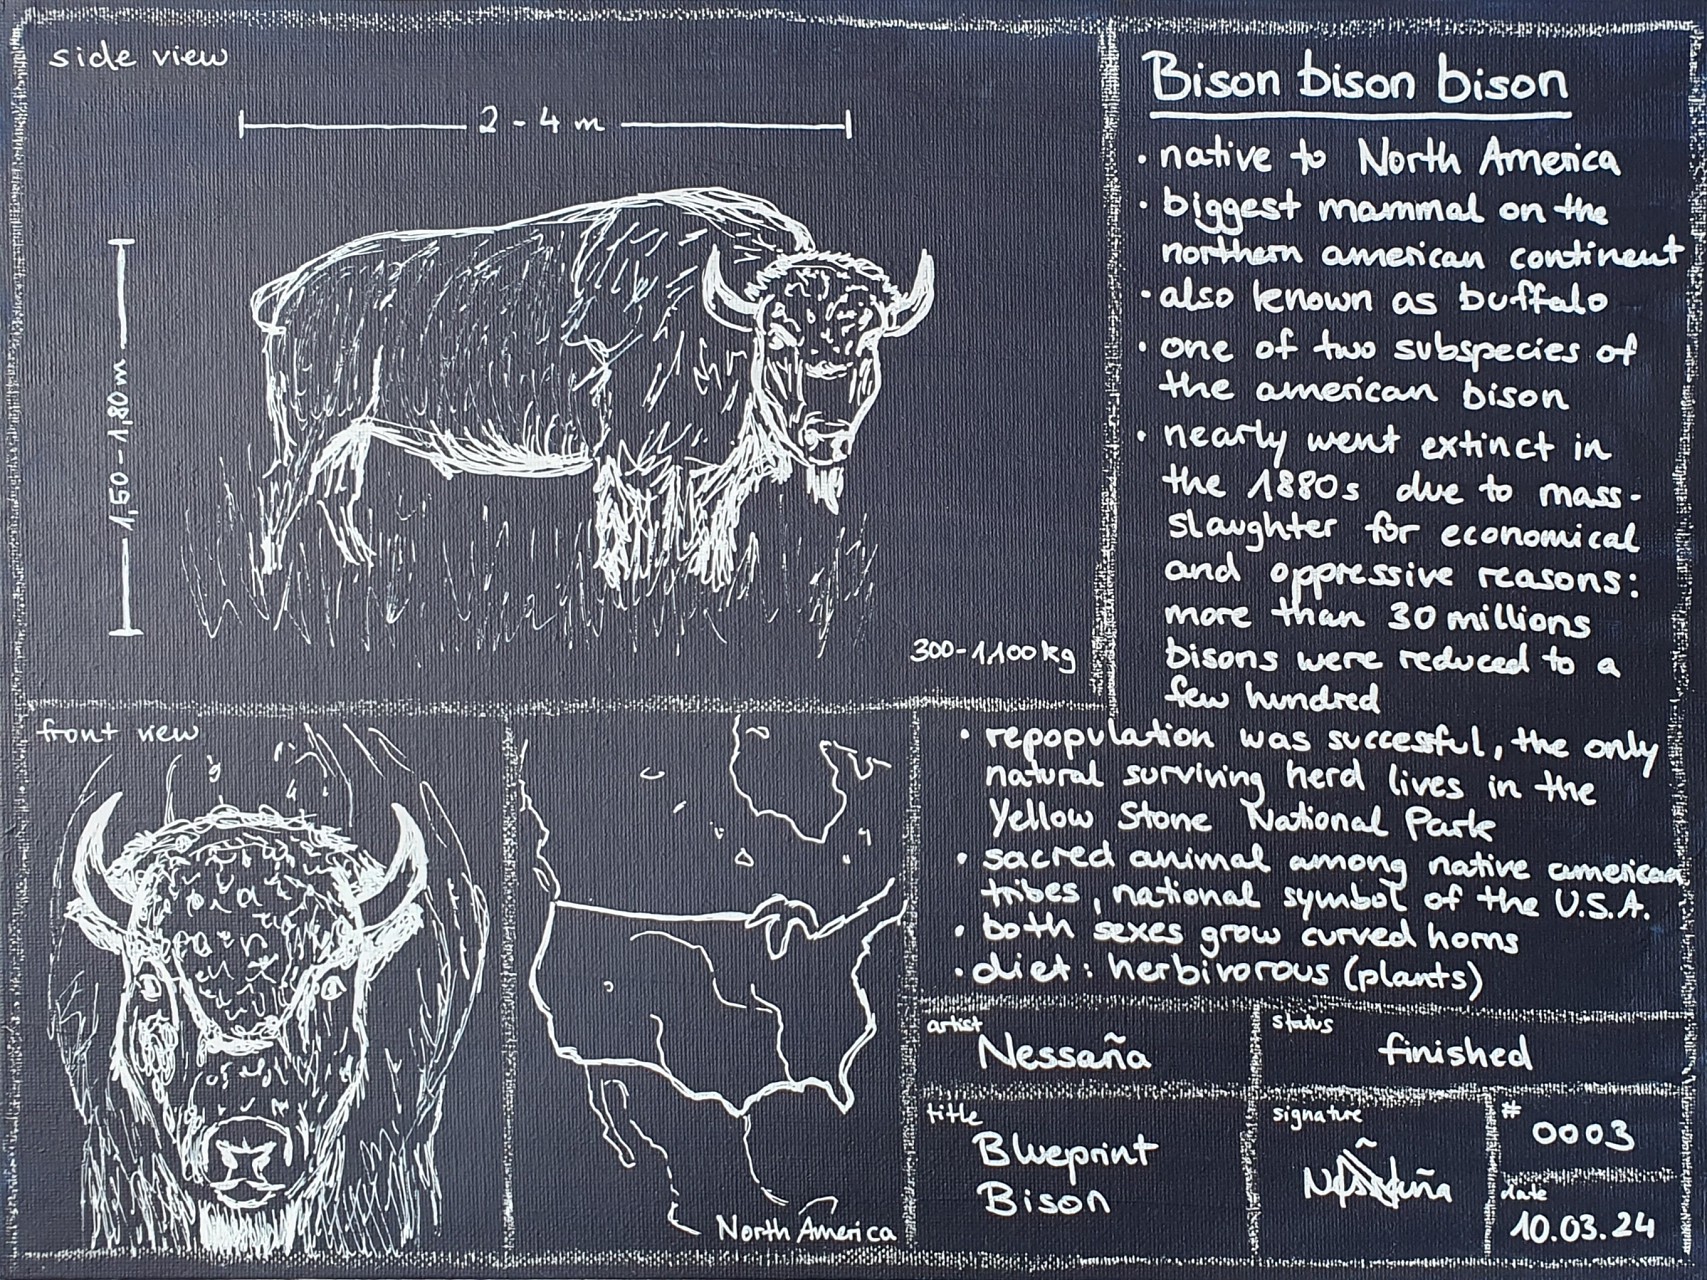 side view
2 - 4 m
1,50 - 1,80 m
300-1.100 kg
Bison bison bison
• native to North America
• biggest mammal on the
northern american continent
• also known as buffalo
• one of two subspecies of
the american bison
• nearly went extinct in
the 1880s due to mass-
slaughter for economical
and oppressive reasons:
more than 30 millions
bisons were reduced to a
few hundred
• repopulation was succesful, the only
natural surviving herd lives in the
Yellow Stone National Park
• sacred animal among native american
tribes, national symbol of the U.S.A.
• both sexes grow curved horns
• diet: herbivorous (plants)
front view
North America
artist
Nessaña
status
finished
title
Blueprint
Bison
signature
Nessaña
#
0003
date
10.03.24